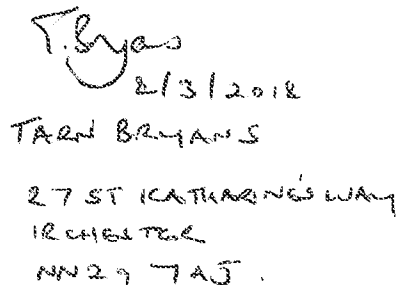 T. Bryans
2/3/2018
TARN BRYANS
27 ST KATHARINE'S WAY
IRCHESTER
NN29 7AJ.